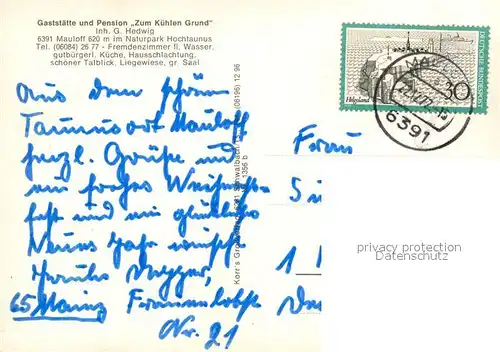 Gaststätte und Pension „Zum Kühlen Grund"
Inh. G. Hedwig
6391 Mauloff 620 m im Naturpark Hochtaunus
Tel. (06084) 26 77 - Fremdenzimmer fl. Wasser,
gutbürgerl. Küche, Hausschlachtung,
schöner Talblick, Liegewiese, gr. Saal
Aus dem schönen
Taunusort Mauloff
herzl. Grüße und
ein frohes Weihnachts-
fest und ein glückliches
Neues Jahr wünscht
65 Mainz Frauenlobstr.
Nr. 21
(06196) 12 96
Schwalbach
1356 b
Frau
DEUTSCHE BUNDESPOST
Helgoland
30
6391
privacy protection
Datenschutz